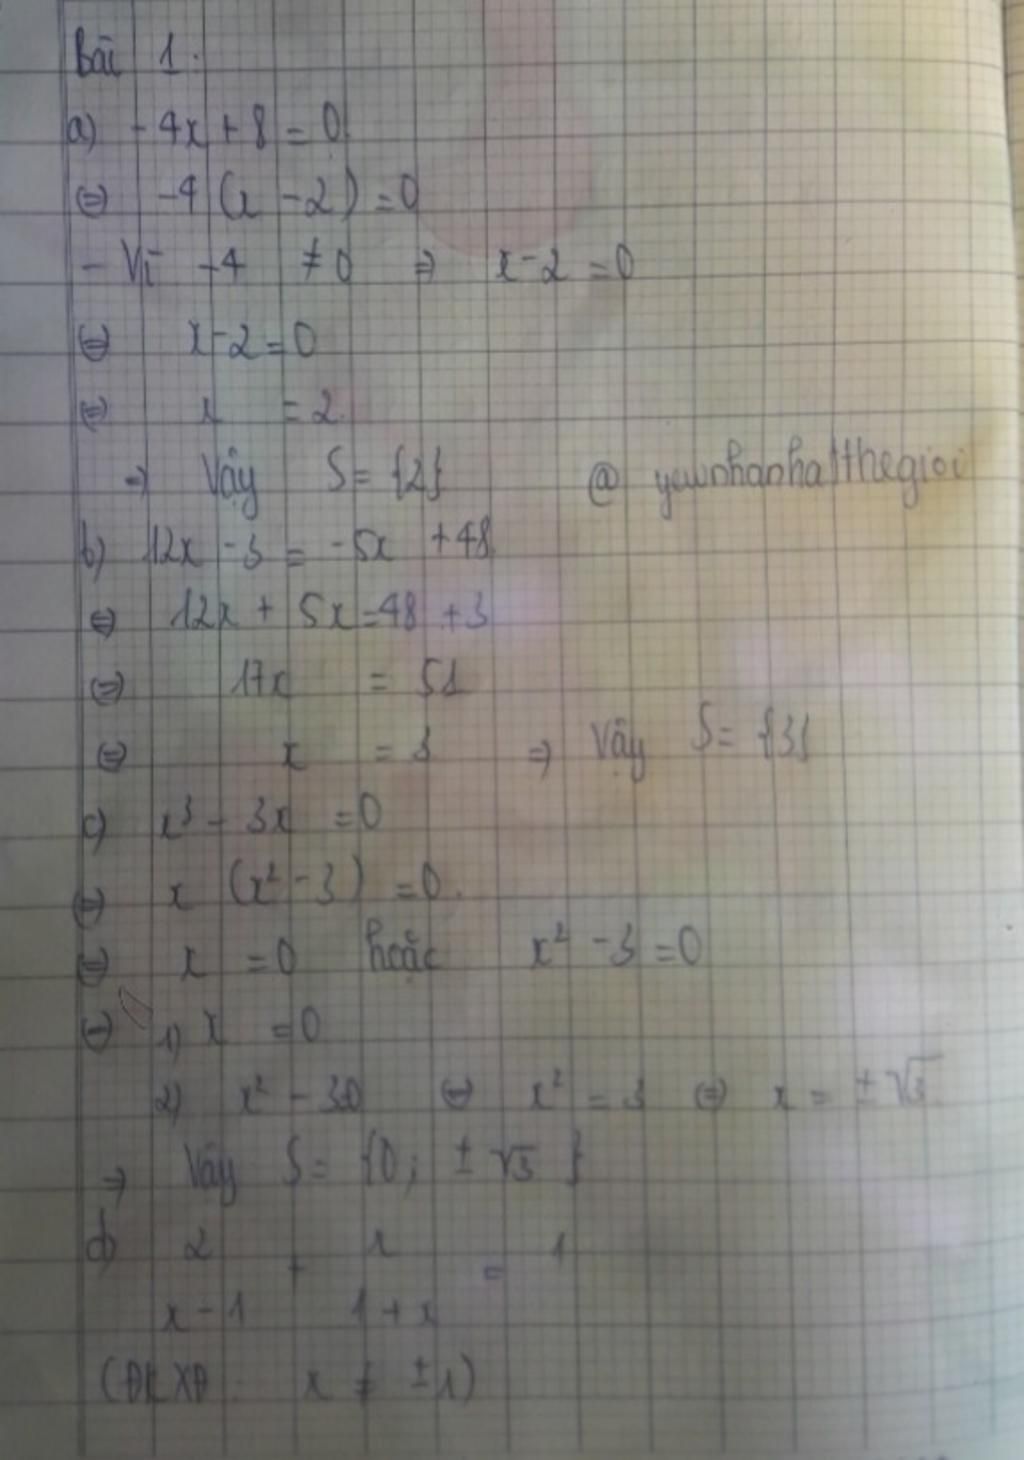 Bài 1.
a) -4x + 8 = 0
⇔ -4 (x - 2) = 0
- Vì -4 ≠ 0 ⇒ x - 2 = 0
⇔ x - 2 = 0
⇔ x = 2
⇒ Vậy S = {2} @
b) 12x - 3 = -5x + 48
⇔ 12x + 5x = 48 + 3
⇔ 17x = 51
⇔ x = 3 ⇒ Vậy S = {3}
c) x³ - 3x = 0
⇔ x (x² - 3) = 0.
⇔ x = 0 hoặc x² - 3 = 0
⇔ 1) x = 0
2) x² - 30 ⇔ x² = 3 ⇔ x = ±√3
⇒ Vậy S = {0; ±√3}
d) 2 + x = 1
x - 1 1 + x
(ĐKXĐ: x ≠ ±1)